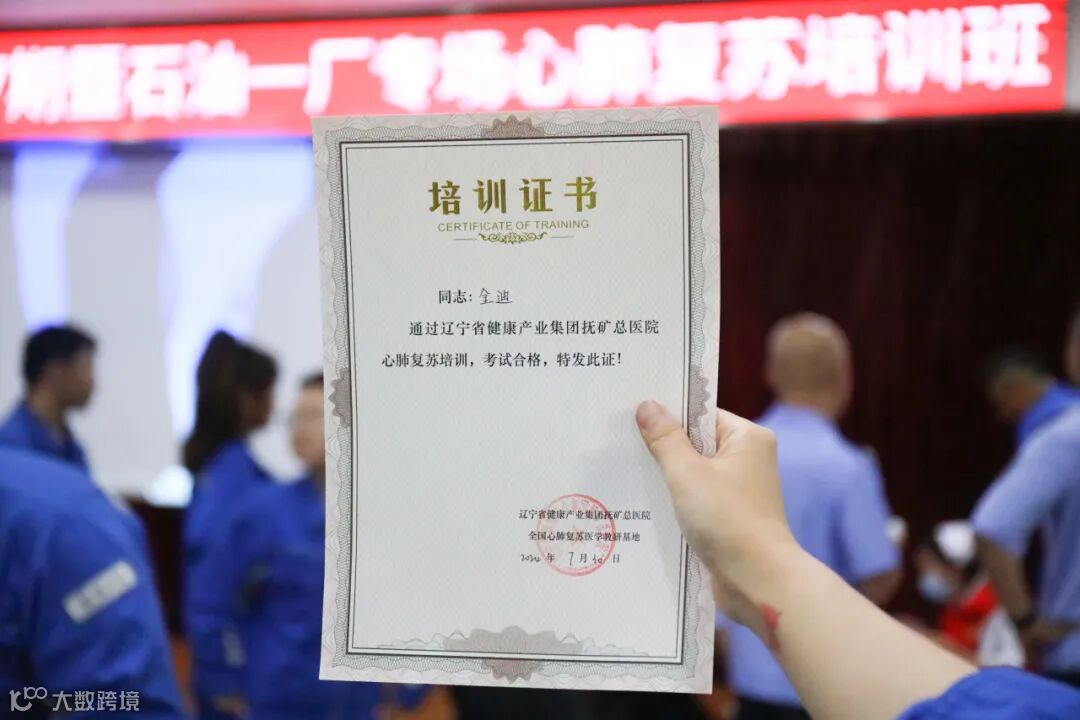 石油一厂专场心肺复苏培训班
培训证书
CERTIFICATE OF TRAINING
同志：金迪
通过辽宁省健康产业集团抚矿总医院
心肺复苏培训，考试合格，特发此证！
辽宁省健康产业集团抚矿总医院
全国心肺复苏医学教研基地
2024 年 7 月 20 日
10100 大数跨境